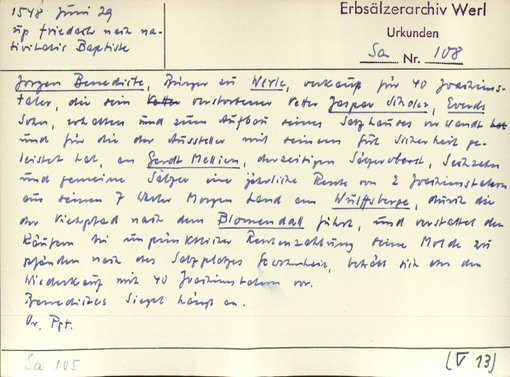 1548 Juni 29
up friedach nach na-
tivitatis Baptiste
Erbsälzerarchiv Werl
Urkunden
Sa Nr. 108
Jorgen Benedicte, Bürger zu Werle, verkauft für 40 Joachims-
taler, die sein verstorbener Vetter Jasper Everds
Sohn, erhalten und zum Aufbau seines Salzhauses verwandt
und für die der Aussteller mit seinem Gut Sicherheit ge-
leistet hat, an Gerdt Mellien, derzeitigen Sälzeroberst, Sechzehn
und gemeine Sälzer eine jährliche Rente von 2 Joachimstalern
aus seinen 7 Werler Morgen Land am Wulffsberge, durch die
der Vichpad nach dem Blomendall führt, und verstattet den
Käufern bei unpünktlicher Rentenzahlung seine Molde zu
pfänden nach des Salzplatzes Gewohnheit, behält sich aber den
Wiederkauf mit 40 Joachimstalern vor.
Benedictes Siegel hängt an.
Or. Pgt.
Sa 105
(V 13)